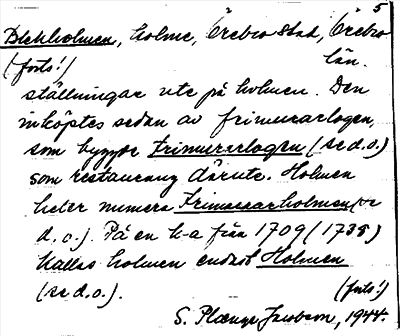 5
Blekholmen, holme, Örebro stad, Örebro
(forts!) län.
ställningar ute på holmen. Den
inköptes sedan av frimurarlogen,
som byggde Frimurarlogen (se d.o.)
som restaurang därute. Holmen
heter numera Frimurarholmen (se
d.o.). På en k-a från 1709 (1785)
kallas holmen endast Holmen
(se d.o.). (forts!)
S. Plænge Jacobson, 1944.